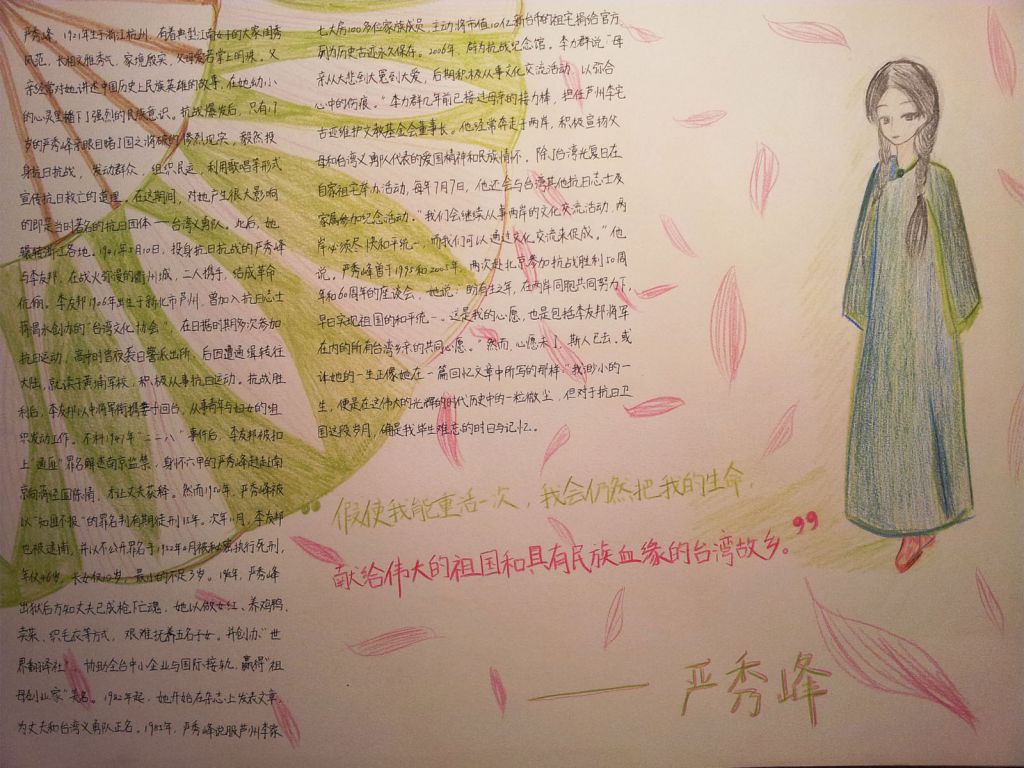 严秀峰 1921年生于浙江杭州,有着典型江南女子的大家闺秀
风范,长相文雅秀气,家境殷实,父母爱若掌上明珠。父
亲经常对她讲述中国历史上民族英雄的故事,在她幼小
的心灵里播下了强烈的民族意识。抗战爆发后,只有17
岁的严秀峰亲眼目睹了国之将破的惨烈现实,毅然投
身抗日抗战,发动群众,组织民运,利用歌唱等形式
宣传抗日救亡的道理。在这期间,对她产生很大影响
的即是当时著名的抗日团体——台湾义勇队。此后,她
辗转浙江各地。1941年3月10日,投身抗日抗战的严秀峰
与李友邦,在战火弥漫的衢州城,二人携手,结成革命
伉俪。李友邦1906年出生于新北市芦州,曾加入抗日志士
蒋渭水创办的"台湾文化协会",在日据时期多次参加
抗日运动,高中时曾夜袭日警派出所,后因遭通缉转往
大陆,就读于黄埔军校,积极从事抗日运动。抗战胜
利后,李友邦以中将军衔携妻子回台,从事青年与妇女的组
织发动工作。不料1947年"二二八"事件后,李友邦被扣
上"通匪"罪名解送南京监禁,身怀六甲的严秀峰赶赴南
京向蒋经国陈情,才让丈夫获释。然而1950年,严秀峰被
以"知匪不报"的罪名判有期徒刑15年。次年11月,李友邦
也被逮捕,并以不公开罪名于1952年4月被秘密执行死刑,
年仅46岁,长女仅10岁,最小的不足3岁。1965年,严秀峰
出狱后方知丈夫已成枪下亡魂,她以做女红、养鸡鸭,
卖菜、织毛衣等方式,艰难抚养五名子女。并创办"世
界翻译社",协助全台中小企业与国际接轨,赢得"祖
母创业家"美名。1982年起,她开始在杂志上发表文章,
为丈夫和台湾义勇队正名。1985年,严秀峰说服芦州李家
七大房100多位家族成员,主动将市值10亿新台币的祖宅捐给官方
列为历史古迹永久保存。2006年,辟为抗战纪念馆。李力群说"母
亲从大悲到大冤到大爱,后期积极从事文化交流活动,以弥合
心中的伤痕。"李力群几年前已接过母亲的接力棒,担任芦州李宅
古迹维护文教基金会董事长。他经常奔走于两岸,积极宣扬父
母和台湾义勇队代表的爱国精神和民族情怀。除了台湾光复日在
自家祖宅举办活动,每年7月7日,他还会与台湾其他抗日志士及
家属参加纪念活动。"我们会继续从事两岸的文化交流活动,两
岸必须尽快和平统一,而我们可以通过文化交流来促成。"他
说,严秀峰曾于1995和2005年,两次赴北京参加抗战胜利50周
年和60周年的座谈会,她说:"盼有生之年,在两岸同胞共同努力下,
早日实现祖国的和平统一。这是我的心愿,也是包括李友邦将军
在内的所有台湾乡亲的共同心愿。"然而,心愿未了,斯人已去,或
许她的一生正像她在一篇回忆文章中所写的那样:"我渺小的一
生,便是在这伟大的光辉的时代历史中的一粒微尘,但对于抗日卫
国这段岁月,确是我毕生难忘的时日与记忆。
"假使我能重活一次,我会仍然把我的生命,
献给伟大的祖国和具有民族血缘的台湾故乡。"
—— 严秀峰